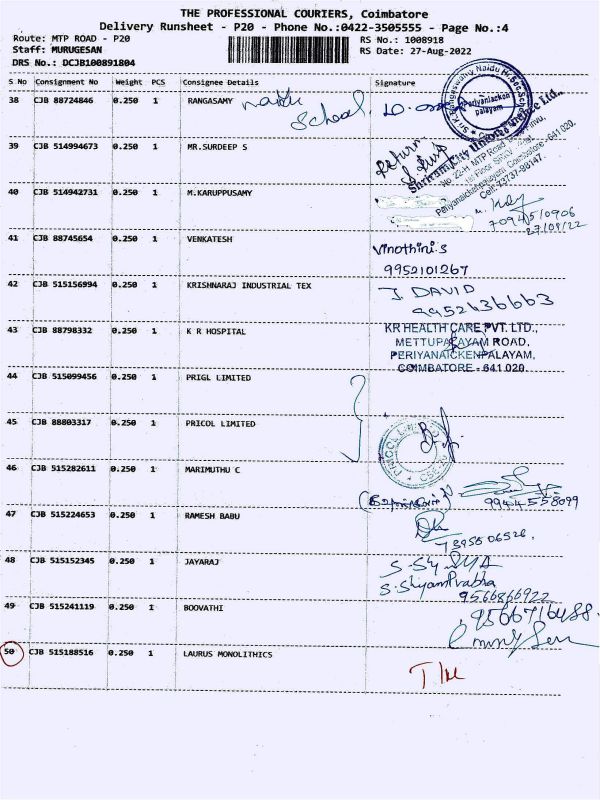 THE PROFESSIONAL COURIERS, Coimbatore
Delivery Runsheet - P20 - Phone No.:0422-3505555 - Page No.:4
Route: MTP ROAD - P20 RS No.: 1008918
Staff: MURUGESAN RS Date: 27-Aug-2022
DRS No.: DCJB100891804
S No Consignment No Weight PCS Consignee Details Signature
38 CJB 88724846 0.250 1 RANGASAMY naidu School.
Periyanaicken palayam
39 CJB 514994673 0.250 1 MR.SURDEEP S Return
No. 22-H, MTP Road
1st Floor
Periyanaickenpalayam, Coimbatore - 641 020.
Cell: 73737-98147.
40 CJB 514942731 0.250 1 M.KARUPPUSAMY
7094510906
27/08/22
41 CJB 88745654 0.250 1 VENKATESH Vinothini.S
9952101267
42 CJB 515156994 0.250 1 KRISHNARAJ INDUSTRIAL TEX J. DAVID
9952636663
43 CJB 88798332 0.250 1 K R HOSPITAL KR HEALTH CARE PVT. LTD.,
METTUPALAYAM ROAD,
PERIYANAICKENPALAYAM,
COIMBATORE - 641 020.
44 CJB 515099456 0.250 1 PRIGL LIMITED
45 CJB 88803317 0.250 1 PRICOL LIMITED
46 CJB 515282611 0.250 1 MARIMUTHU C
9944558099
47 CJB 515224653 0.250 1 RAMESH BABU
7395606526.
48 CJB 515152345 0.250 1 JAYARAJ
S. Shyam Prabha
9566866922
49 CJB 515241119 0.250 1 BOOVATHI 9566716488.
50 CJB 515188516 0.250 1 LAURUS MONOLITHICS